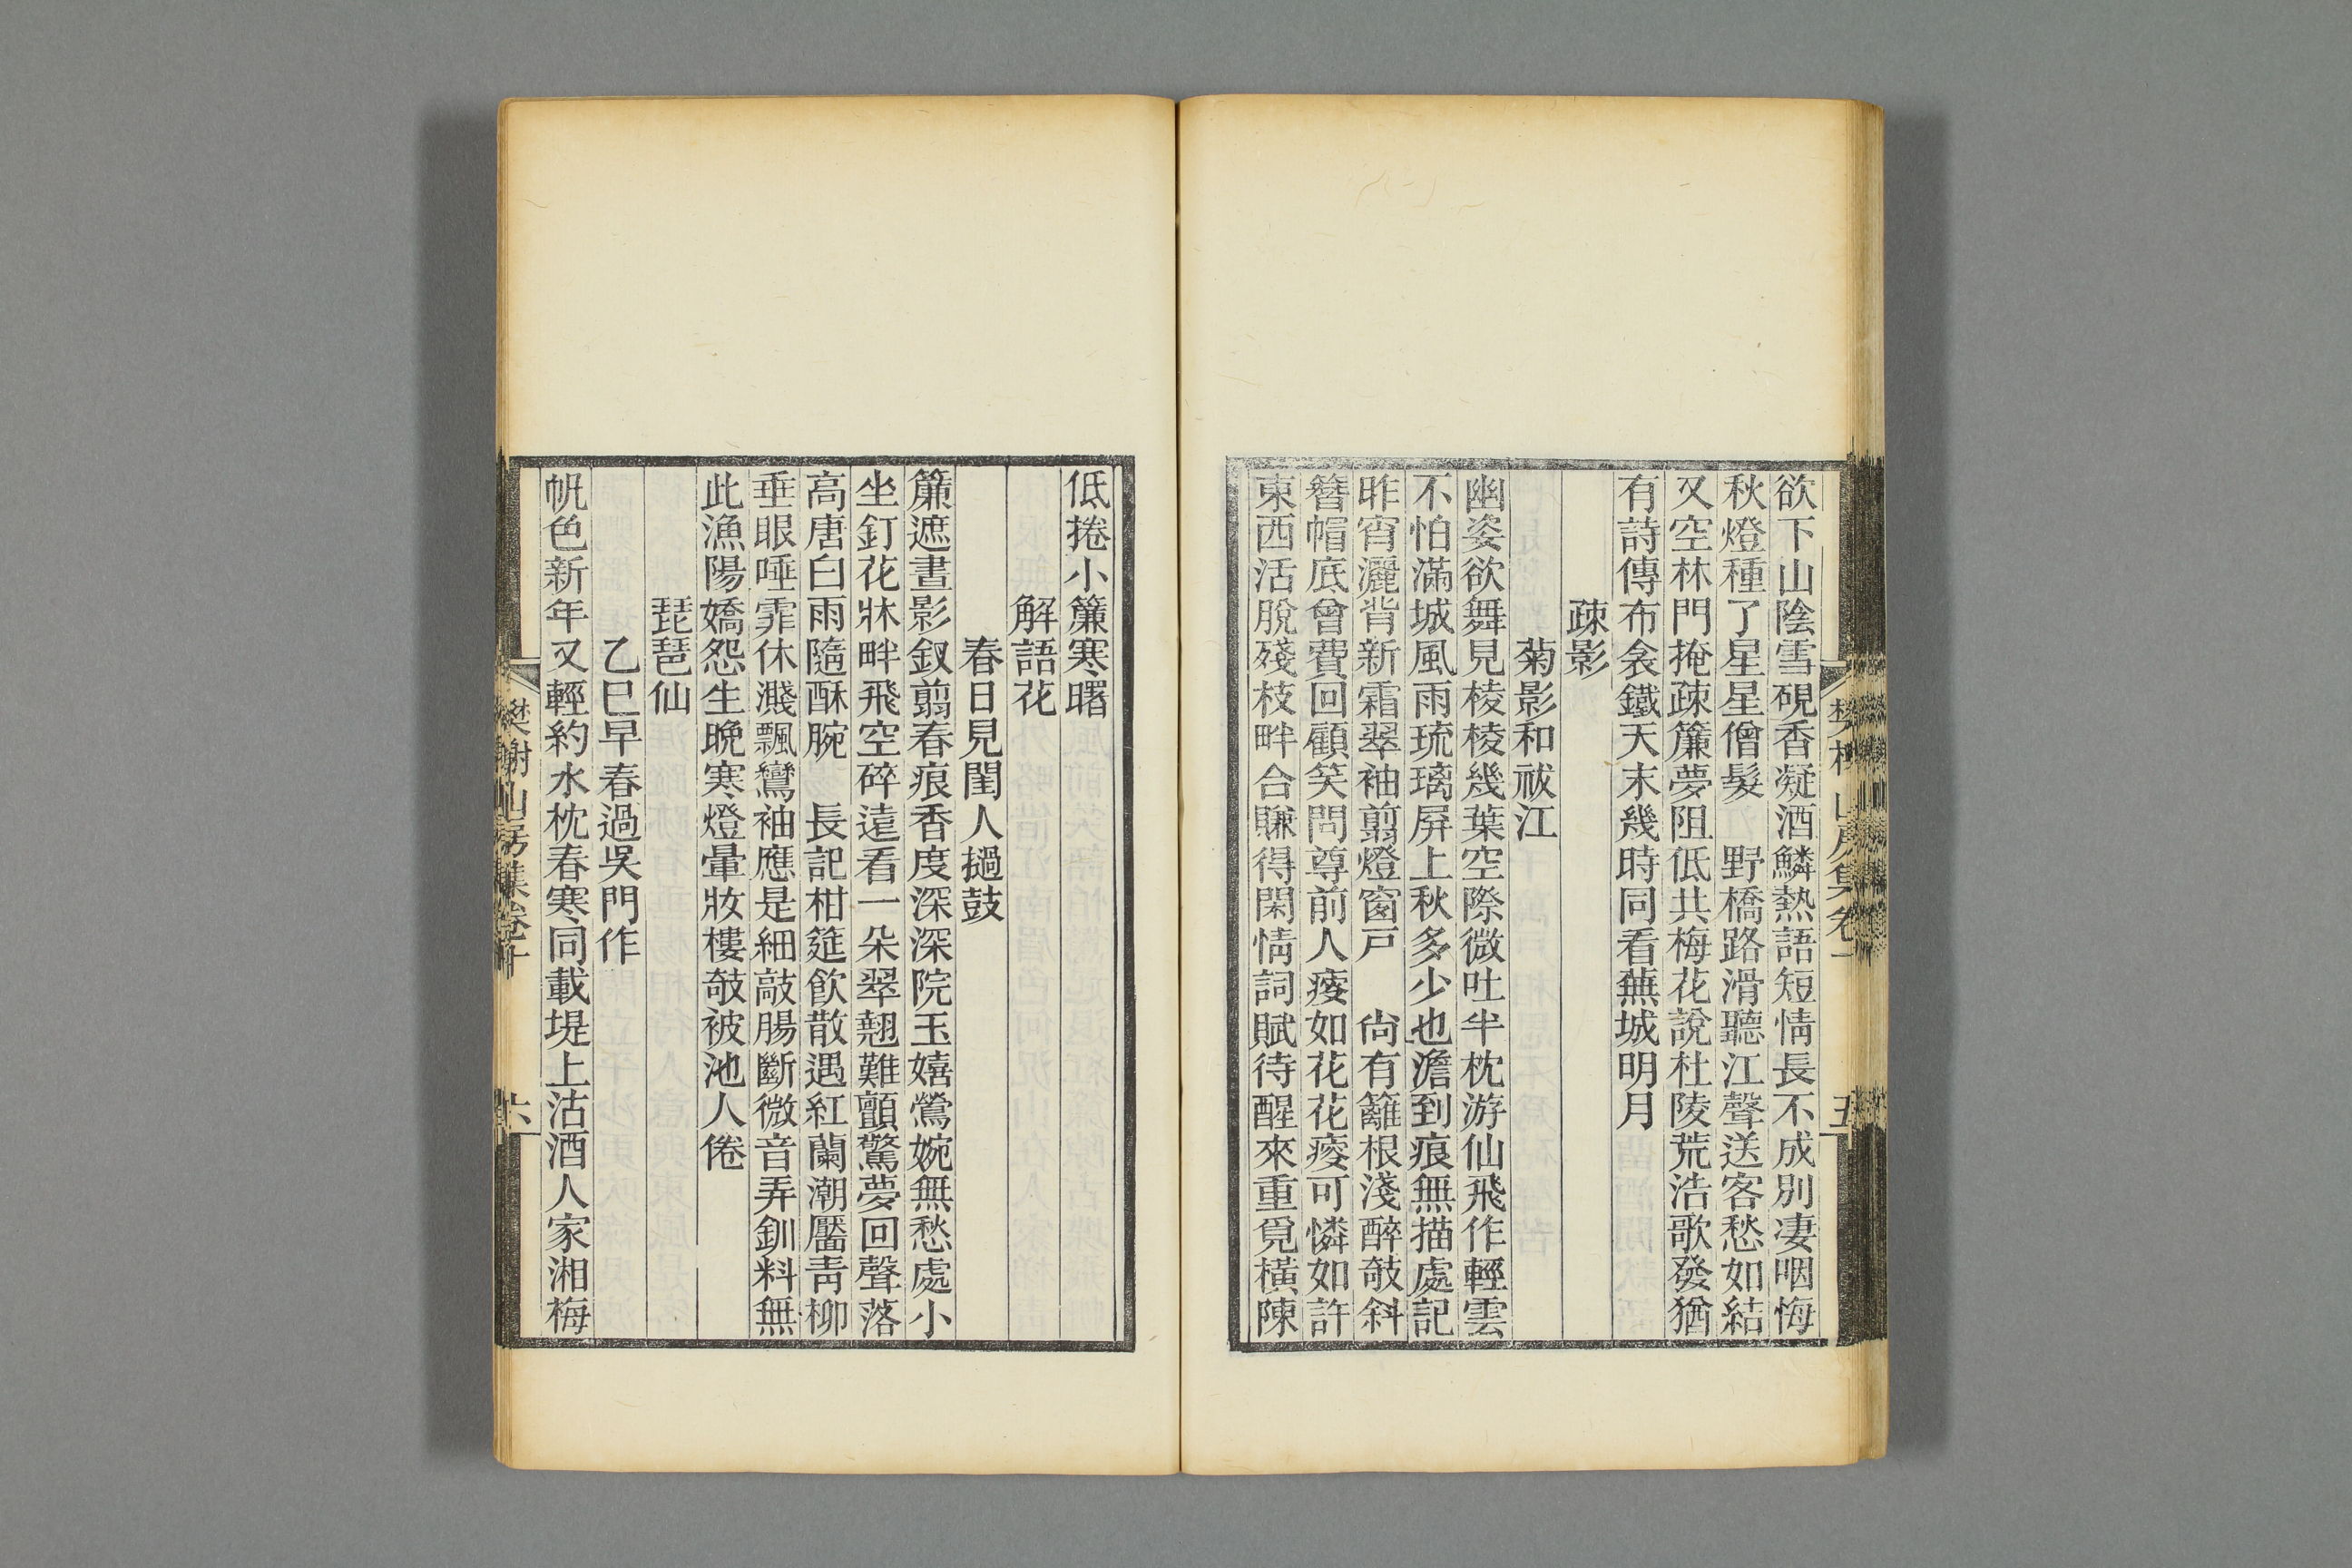 欲下山陰雪硯香凝酒鱗熱語短情長不成別淒咽悔
秋燈種了星星僧髮　野橋路滑聽江聲送客愁如結
又空林門掩疎簾夢阻低共梅花說杜陵荒浩歌發猶
有詩傳布衾鐵天末幾時同看蕪城明月
疎影
菊影和祓江
幽姿欲舞見棱棱幾葉空際微吐半枕游仙飛作輕雲
不怕滿城風雨琉璃屏上秋多少也澹到痕無描處記
昨宵灑背新霜翠袖翦燈窗戸　尙有籬根淺醉攲斜
簪帽底曾費回顧笑問尊前人瘦如花花瘦可憐如許
東西活脫殘枝畔合賺得閑情詞賦待醒來重覓橫陳
低捲小簾寒曙
解語花
春日見閨人撾鼓
簾遮晝影釵翦春痕香度深深院玉嬉鶯婉無愁處小
坐釘花牀畔飛空碎遠看一朵翠翹難顫驚夢回聲落
高唐白雨隨酥腕　長記柑筵飮散遇紅蘭潮靨靑柳
垂眼唾霏休濺飄鸞袖應是細敲腸斷微音弄釧料無
此漁陽嬌怨生晚寒燈暈妝樓攲被池人倦
琵琶仙
乙巳早春過吳門作
帆色新年又輕約水枕春寒同載堤上沽酒人家湘梅
樊謝山房集卷十
六